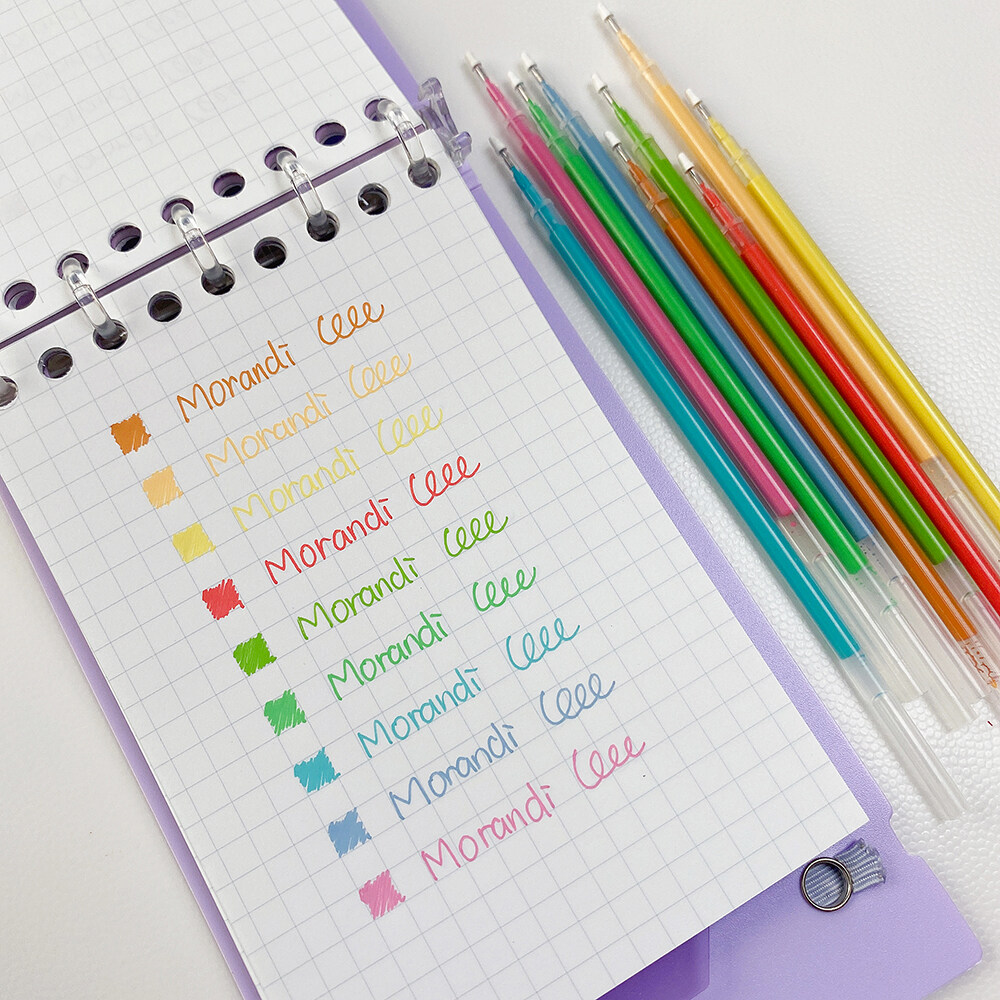 Morandi
Morandi
Morandi
Morandi
Morandi
Morandi
Morandi
Morandi
Morandi